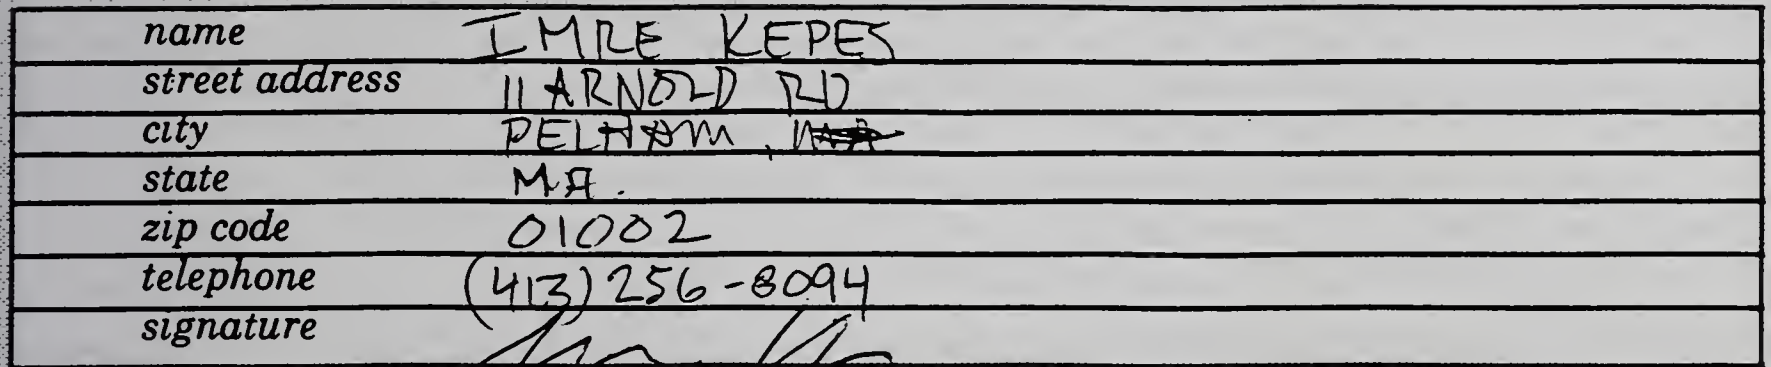 name IMRE KEPES
street address 11 ARNOLD RD
city PELHAM,
state MA.
zip code 01002
telephone (413) 256-8094
signature